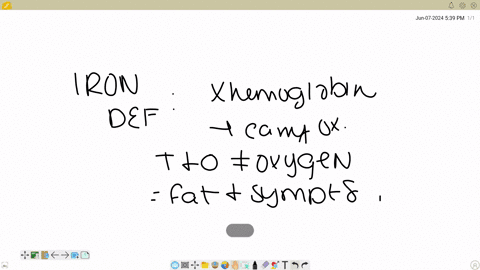 Jun-07-2024 5:39 PM 1/1
IRON
DEF : X hemoglobin
→ can't ox.
T + O ≠ OXYGEN
= fat + sympts